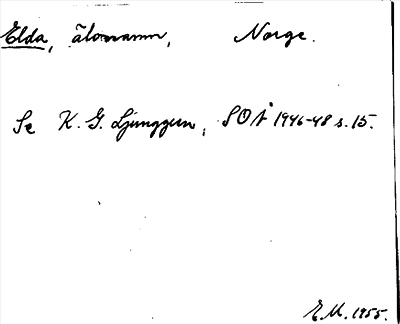 Elda, älvnamn, Norge.
Se K. G. Ljunggren, SOÅ 1946-48 s. 15.
E.M. 1955.